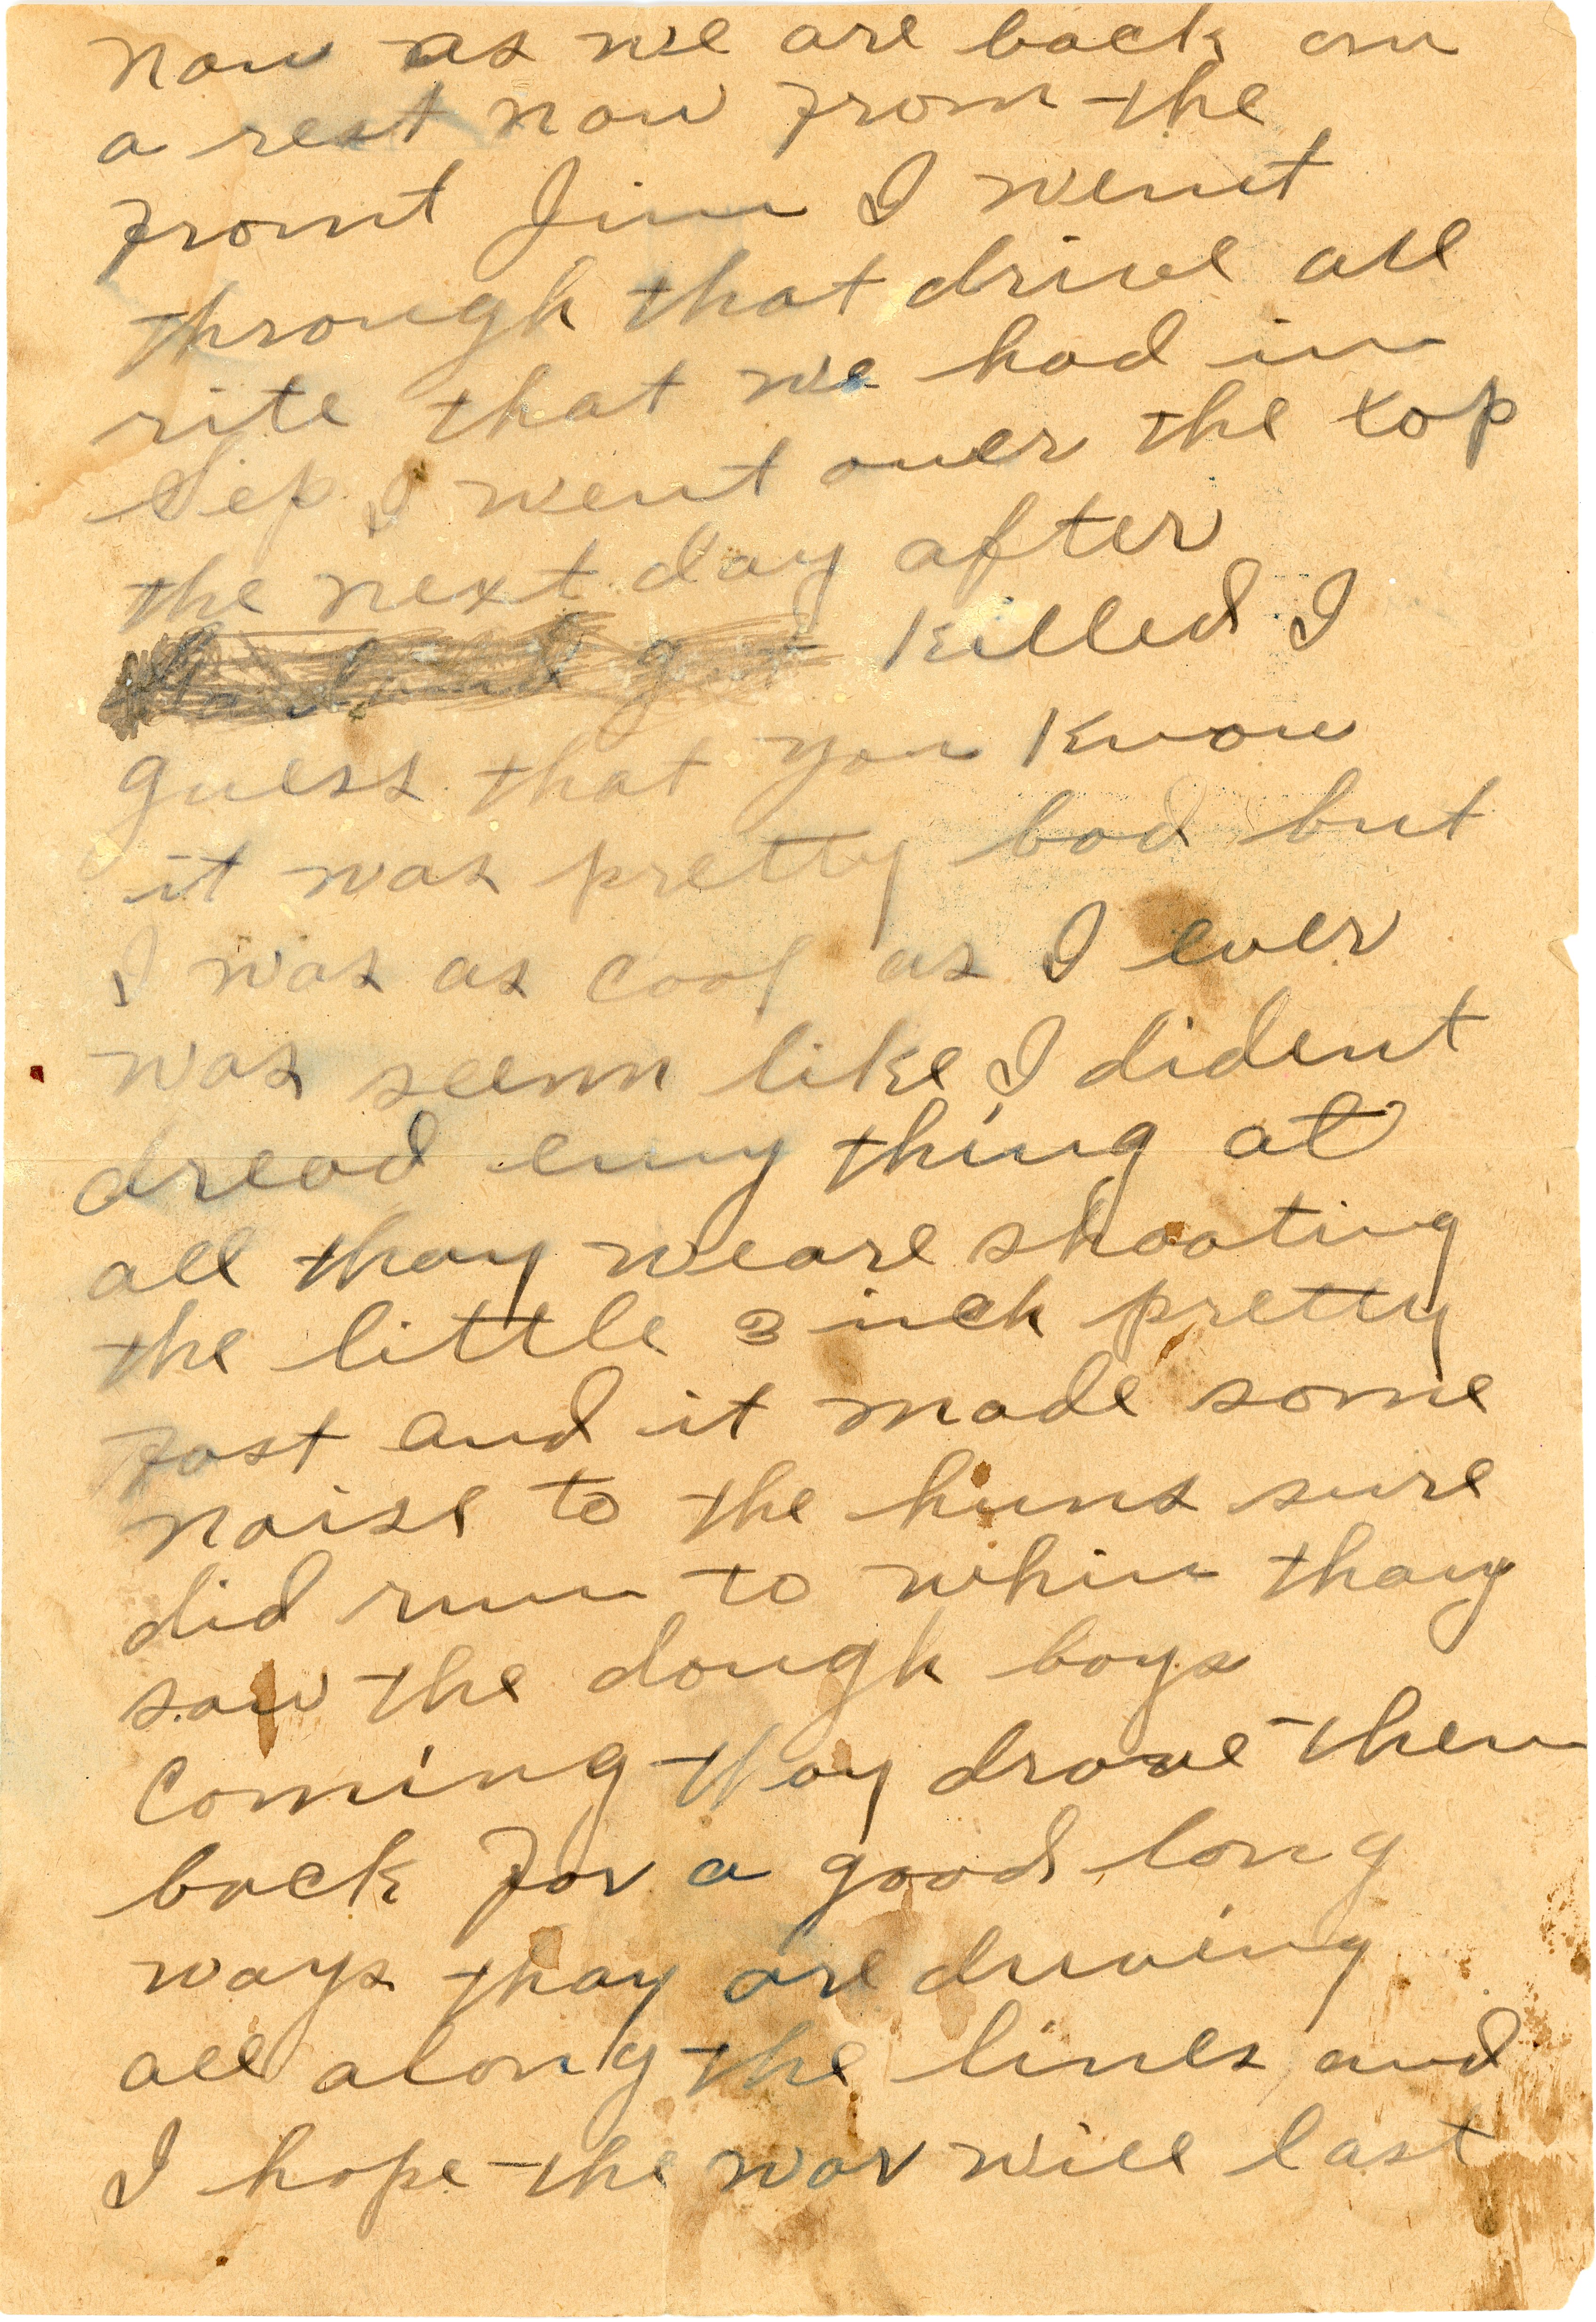 now as we are back on
a rest now from the
front Jim I went
through that drive all
rite that we had in
Sep I went over the top
the next day after
got killed I
guess that you know
it was pretty bad but
I was as cool as I ever
was seem like I dident
dread eny thing at
all thay weare shooting
the little 3 inch pretty
fast and it made some
noise to the huns sure
did run to whin thay
saw the dough boys
coming thay drove them
back for a good long
ways thay are driving
all along the lines and
I hope the war will last